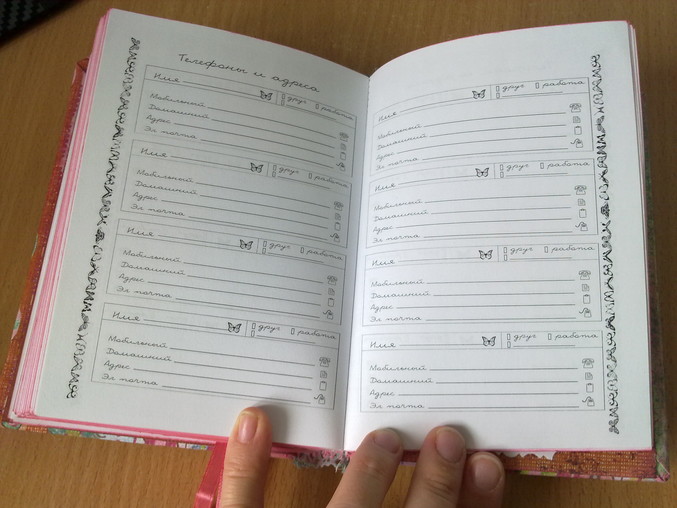 Телефоны и адреса
Имя
друг работа
Мобильный
Домашний
Адрес
Эл почта
Имя
друг работа
Мобильный
Домашний
Адрес
Эл почта
Имя
друг работа
Мобильный
Домашний
Адрес
Эл почта
Имя
друг работа
Мобильный
Домашний
Адрес
Эл почта
Имя
друг работа
Мобильный
Домашний
Адрес
Эл почта
Имя
друг работа
Мобильный
Домашний
Адрес
Эл почта
Имя
друг работа
Мобильный
Домашний
Адрес
Эл почта
Имя
друг работа
Мобильный
Домашний
Адрес
Эл почта